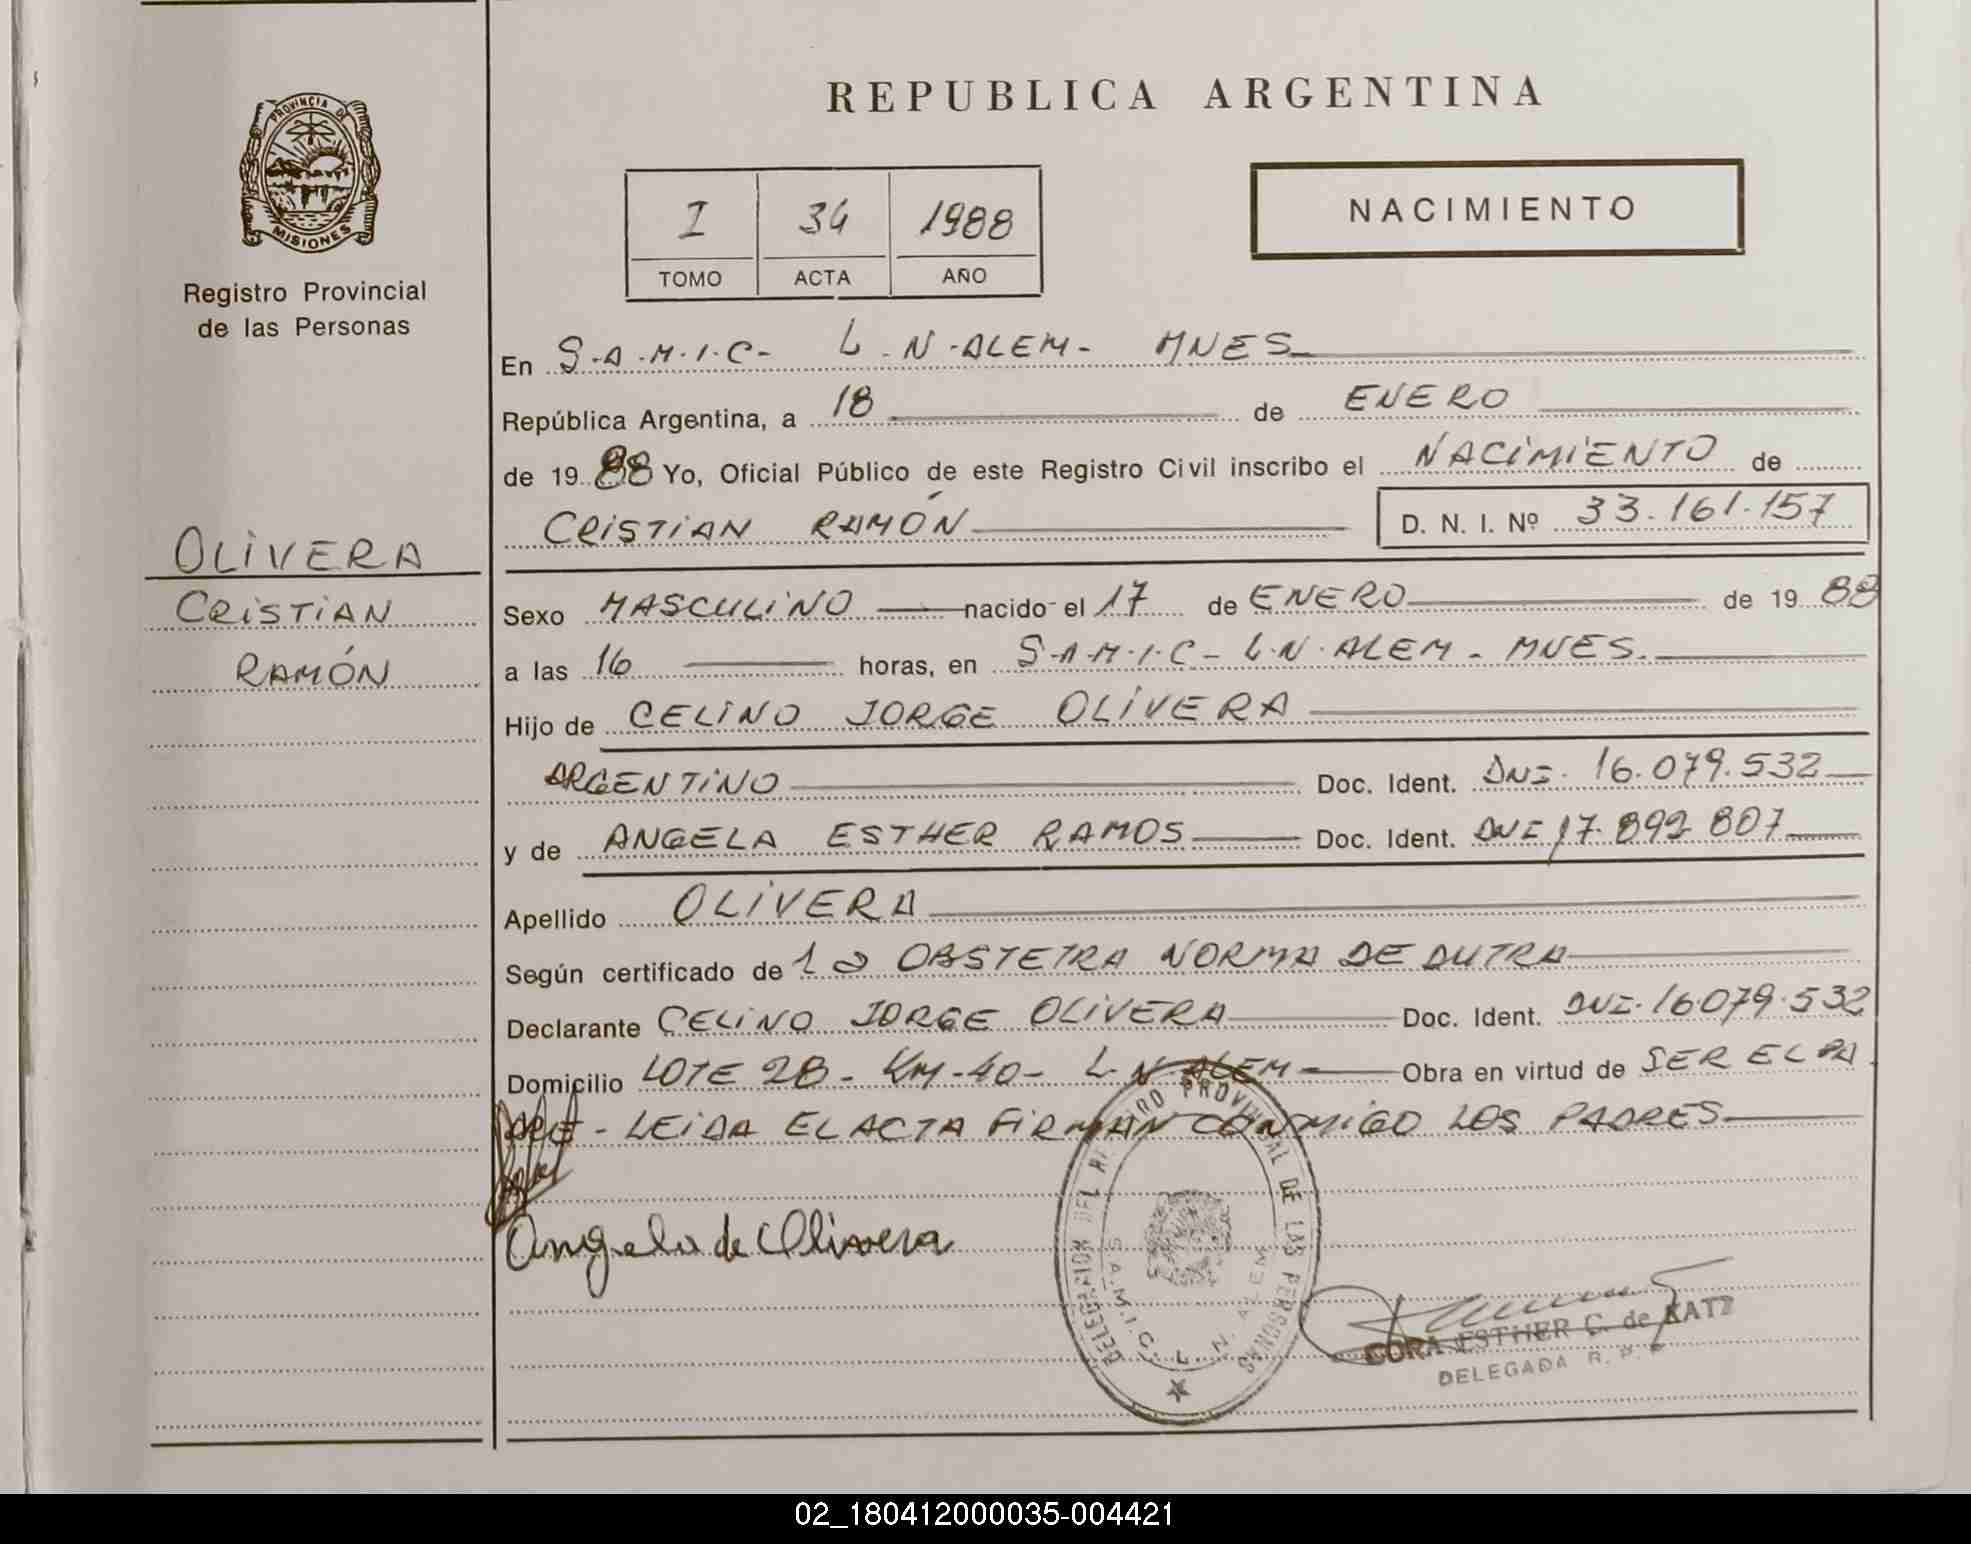 REPUBLICA ARGENTINA
PROVINCIA DE
MISIONES
Registro Provincial
de las Personas
I 34 1988
TOMO ACTA AÑO
NACIMIENTO
En S.A.M.I.C- L.N.ALEM- MNES
República Argentina, a 18 de ENERO
de 19 88 Yo, Oficial Público de este Registro Civil inscribo el NACIMIENTO de
CRISTIAN RAMÓN D. N. I. Nº 33.161.157
OLIVERA
CRISTIAN
RAMÓN
Sexo MASCULINO nacido el 17 de ENERO de 19 88
a las 16 horas, en S.A.M.I.C- L.N.ALEM - MNES.
Hijo de CELINO JORGE OLIVERA
ARGENTINO Doc. Ident. DNI. 16.079.532
y de ANGELA ESTHER RAMOS Doc. Ident. DNI 17.892.807
Apellido OLIVERA
Según certificado de la OBSTETRA NORMA DE DUTRA
Declarante CELINO JORGE OLIVERA Doc. Ident. DNI. 16.079.532
Domicilio LOTE 28 - KM-40- L.N.ALEM Obra en virtud de SER EL PA
DRE - LEIDA EL ACTA FIRMAN CONMIGO LOS PADRES
Angela de Olivera
DELEGACION DEL REGISTRO PROVINCIAL DE LAS PERSONAS
S.A.M.I.C. L. N. ALEM
CORA ESTHER C. de KATZ
DELEGADA R. P. P.
02_180412000035-004421